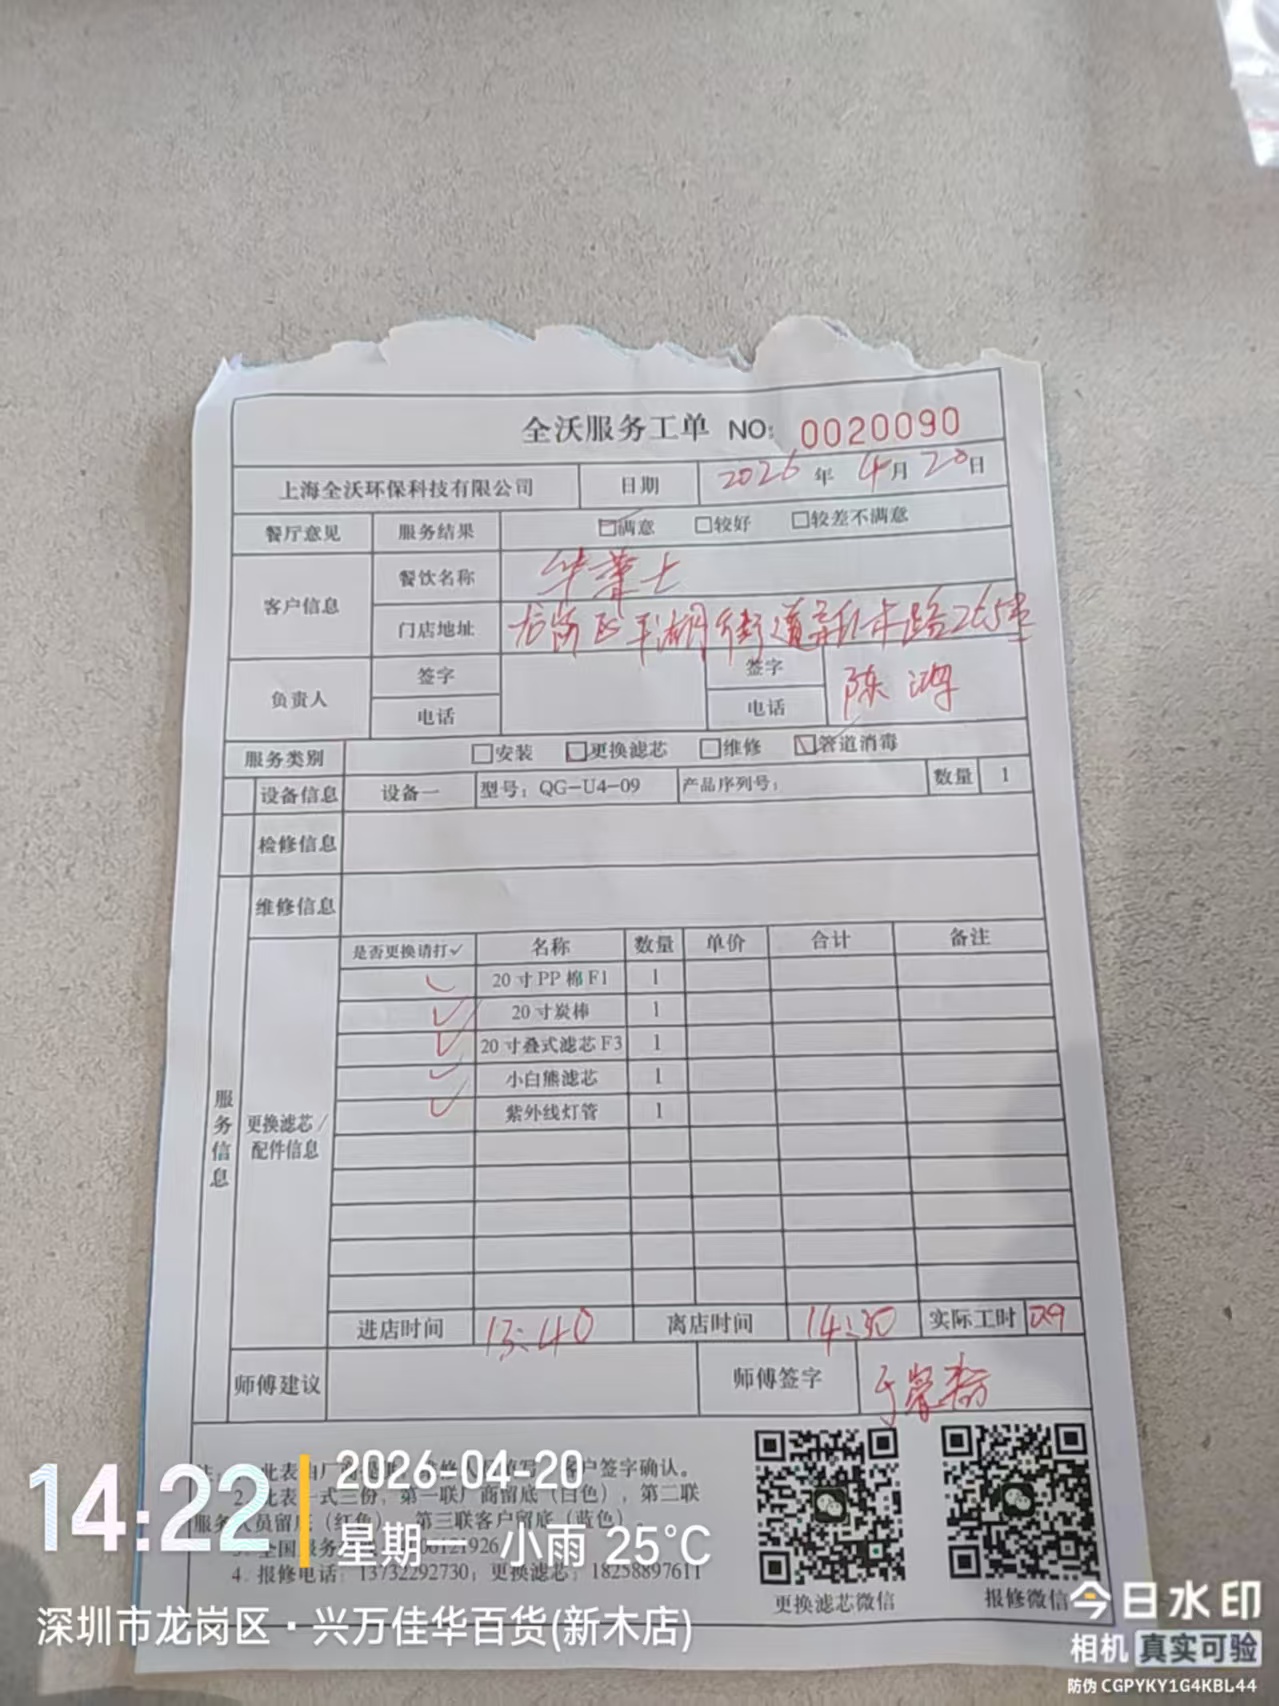 全沃服务工单 NO: 0020090
上海全沃环保科技有限公司 日期 2026年4月20日
餐厅意见 服务结果 满意 较好 较差不满意
客户信息 餐饮名称 华莱士
门店地址 龙岗区平湖街道新木路265号
负责人 签字 签字 陈鸿
电话 电话
服务类别 安装 更换滤芯 维修 管道消毒
设备信息 设备一 型号: QG-U4-09 产品序列号: 数量 1
检修信息
维修信息
服务信息 更换滤芯/配件信息
是否更换请打✓ 名称 数量 单价 合计 备注
✓ 20寸PP棉F1 1
✓ 20寸炭棒 1
✓ 20寸叠式滤芯F3 1
✓ 小白熊滤芯 1
✓ 紫外线灯管 1
进店时间 13:40 离店时间 14:30 实际工时
师傅建议 师傅签字
此表由厂商 填写 客户签字确认。
2. 此表一式三份,第一联厂商留底(白色),第二联
服务人员留底(红色),第三联客户留底(蓝色)。
3. 全国服务 06121926
4. 报修电话:13732292730;更换滤芯:18258897611
更换滤芯微信 报修微信
14:22
2026-04-20
星期一 小雨 25°C
深圳市龙岗区·兴万佳华百货(新木店)
今日水印
相机 真实可验
防伪 CGPYKY1G4KBL44